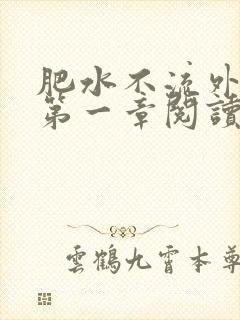 肥水不流外
第一章閱讀
雲鶴九霄本尊